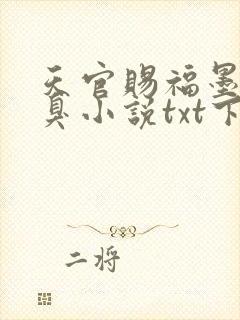 天官赐福墨
臭小说txt下
二将